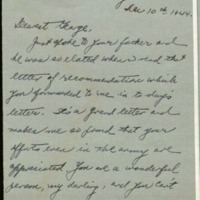 Dec 10th 1944.
Dearest George,
Just spoke to your father and
he was so elated when I read the
letter of recommendation which
you forwarded to me in to-days
letter. It's a grand letter and
makes me so proud that your
efforts even in the army are
appreciated. You are a wonderful
person, my darling, and you can't